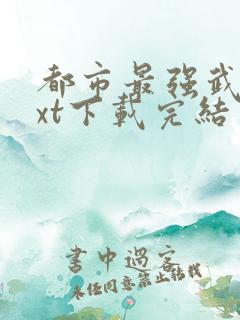 都市最强武
xt下載完結
書中過客
未经同意禁止转载